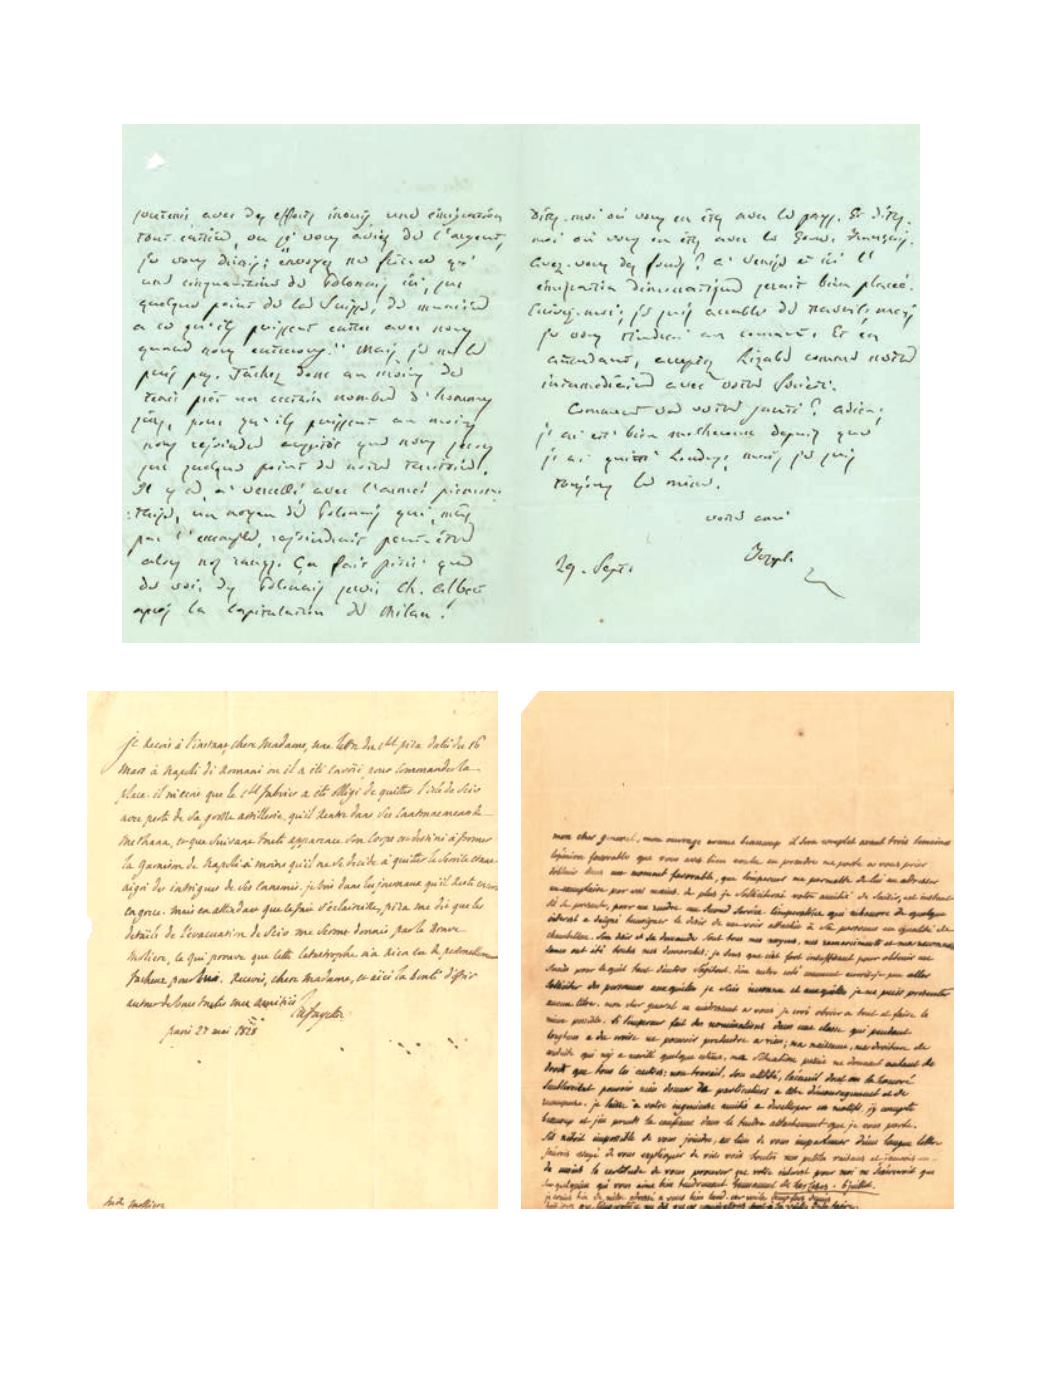 soutenir avec des efforts inouïs une émigration
tout entière, ou si vous aviez de l'argent,
je vous dirais: "envoyez ne fût-ce qu'
une cinquantaine de Polonais ici, sur
quelque point de la Suisse, de manière
a ce qu'ils puissent entrer avec nous
quand nous entrerons." Mais je ne le
puis pas. Tâchez donc au moins de
tenir prêt un certain nombre d'hommes
sûrs, pour qu'ils puissent au moins
nous rejoindre aussitôt que nous serons
sur quelque point de notre territoire.
Il y a, à Verceil avec l'armée piémon-
taise, un noyau de Polonais qui, mûs
par l'exemple, rejoindrait peut-être
alors nos rangs. Ça fait pitié que
de voir des Polonais servir Ch. Albert
après la capitulation de Milan!
Dites-moi où vous en êtes avec le pays. Et dites-
moi où vous en êtes avec le Gouv. Français.
Avez-vous des fonds? à Venise et ici l'
émigration démocratique serait bien placée.
Ecrivez-moi; je suis accablé de travail mais
je vous tiendrai au courant. Et en
attendant, acceptez comme notre
intermédiaire avec votre Société.
Comment va votre santé? adieu;
j'ai été bien malheureux depuis que
j'ai quitté Londres, mais je suis
toujours le même.
votre ami
Joseph
29. Sept.
je reçois à l'instant, chere Madame, une lettre du Cel piza datée du 16
Mars à Napoli di Romani ou il a été envoié pour Commander la
place. il m'ecrit que le Cel Fabvier a été obligé de quitter l'isle de Scio
avec perte de sa grosse artillerie, qu'il rentre dans ses Cantonnemens de
Methana, et que suivant toute apparence son Corps est destiné à former
la garnison de Napoli à moins qu'il ne se decide à quitter le service etant
aigri des intrigues de ses ennemis. je vois dans les journaux qu'il reste encore
en grece. mais en attendant que le fait s'éclaircisse, piza me dit que les
details de l'évacuation de Scio me seront donnés par le brave
Moliere, ce qui prouve que cette Catastrophe n'a rien eu de personnellement
facheux pour lui. Recevés, chere madame, et aiés la bonté d'offrir
autour de vous toutes mes amitiés
Lafayette
paris 27 mai 1828
Mde Molliere
mon cher general, mon ouvrage avance beaucoup il sera complet avant trois semaines
l'opinion favorable que vous avez bien voulu en prendre me porte a vous prier
obtenir dans un moment favorable, que l'empereur me permette de lui en adresser
un exemplaire par vos mains. de plus je solliciterai votre amitié de saisir, cet instant
s'il se presente, pour me rendre un second service. l'imperatrice qui m'honore de quelque
interest a daigné temoigner le desir de me voir attaché à sa personne en qualité de
chambellan. son desir et sa demande sont tous mes moyens, mes remerciments et ma reconnais
sance ont été toutes mes demarches. je sens que c'est fort insuffisant pour obtenir une
solliciter des personnes auxquelles je suis inconnu et auxquelles je ne puis presenter
aucun titre. mon cher general en m'adressant a vous je crois obvier a tout et faire le
mieux possible. si l'empereur fait des nominations dans une classe qui pendant
longtems a du croire ne pouvoir pretendre a rien; ma naissance, ma droiture de
conduite qui m'y a merité quelque estime, ma situation passée me donnent autant de
droit que tous les autres: mon travail, son utilité, l'accueil dont on l'a honoré
sembleroient pouvoir m'en donner de particuliers a titre d'encouragement et de
recompense. je laisse a votre ingenieuse amitié a developper ces motifs, j'y compte
beaucoup et j'en prends la confiance dans le tendre attachement que je vous porte.
s'il n'etoit impossible de vous joindre, au lieu de vous importuner d'une longue lettre
j'aurois essayé de vous expliquer de vive voix toutes mes petites raisons et j'aurois eu
du moins la certitude de vous prouver que votre interest pour moi ne s'exerceroit que
sur quelqu'un qui vous aime bien tendrement Emmanuel de las Cases. 6 juillet.